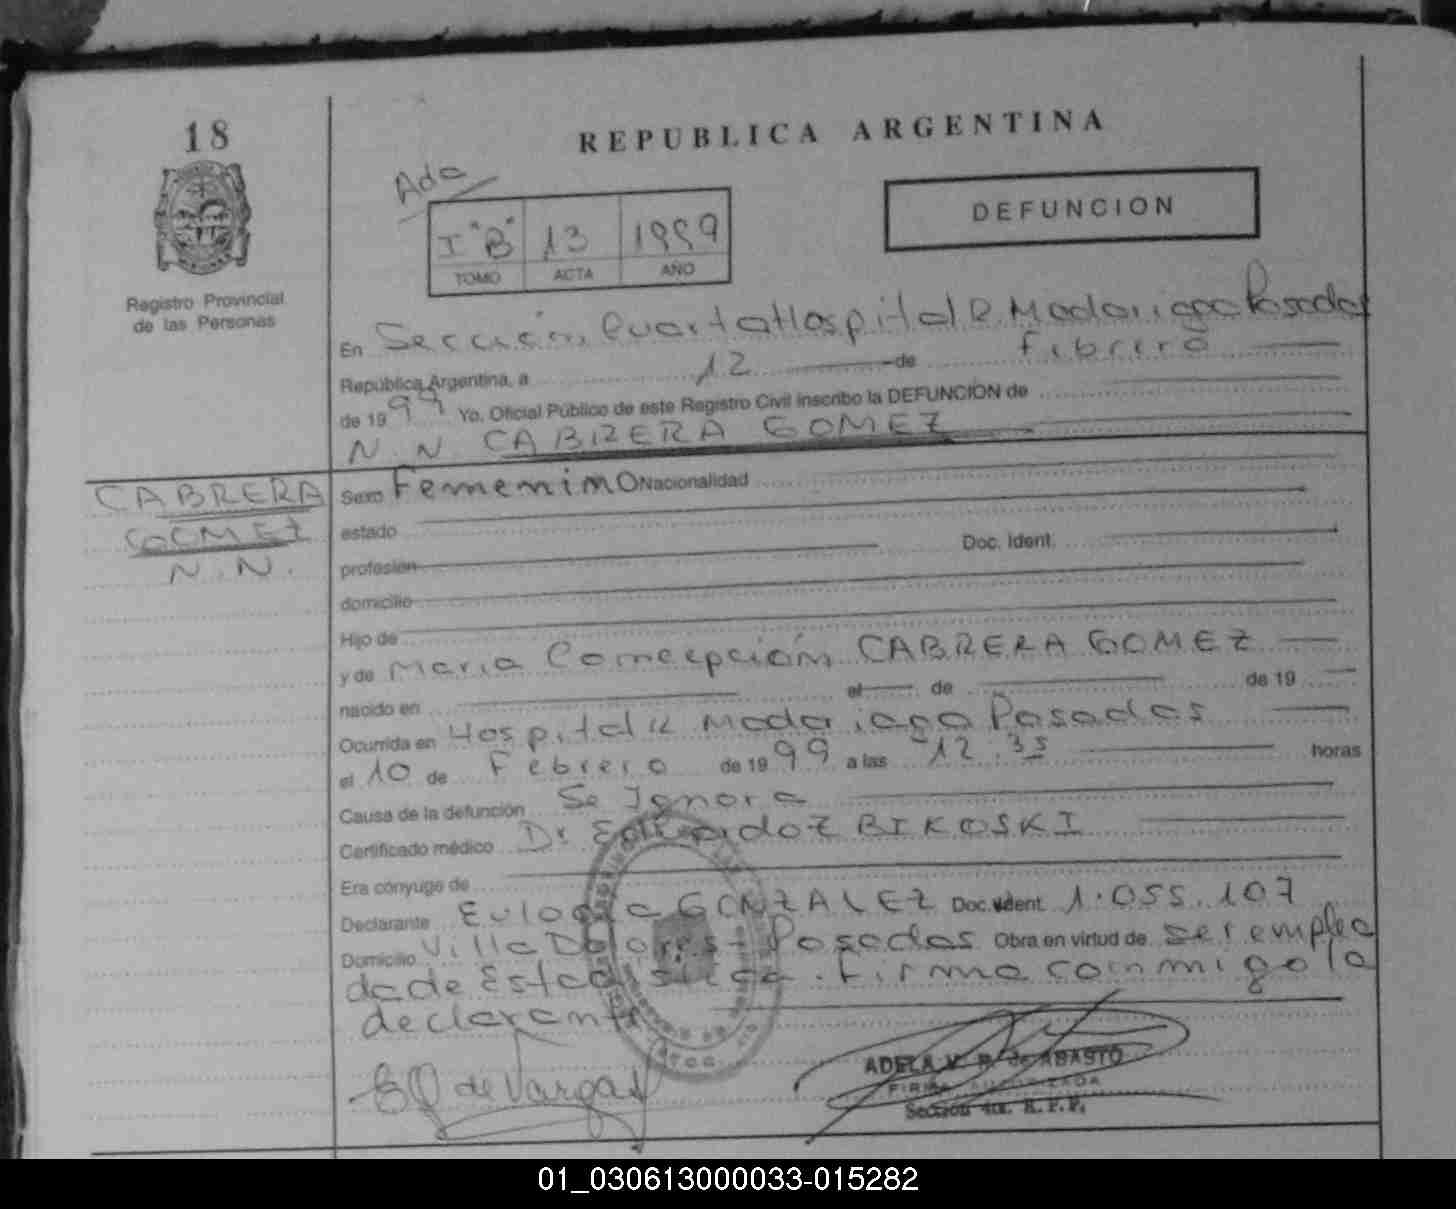 18
REPUBLICA ARGENTINA
Ada
I "B" 13 1999
TOMO ACTA AÑO
DEFUNCION
Registro Provincial
de las Personas
En Sección Cuarta Hospital R Madariaga Posadas
República Argentina, a 12 de Febrero
de 1999 Yo, Oficial Público de este Registro Civil inscribo la DEFUNCION de
N. N. CABRERA GOMEZ
CABRERA
GOMEZ
N. N.
Sexo Femenino Nacionalidad
estado
profesión Doc. Ident.
domicilio
Hijo de
y de Maria Concepción CABRERA GOMEZ
nacido en el de de 19
Ocurrida en Hospital R Madariaga Posadas
el 10 de Febrero de 1999 a las 12:35 horas
Causa de la defunción Se Ignora
Certificado médico Dr BIKOSKI
Era cónyuge de
Declarante Eulogia GONZALEZ Doc. Ident. 1.055.107
Domicilio Villa Dolores - Posadas Obra en virtud de ser emplea
da de Estadistica. Firma conmigo la
declarante
de Vargas
ADELA V. R. de ABASTO
FIRMA AUTORIZADA
Sección 4ta. R.P.P.
01_030613000033-015282